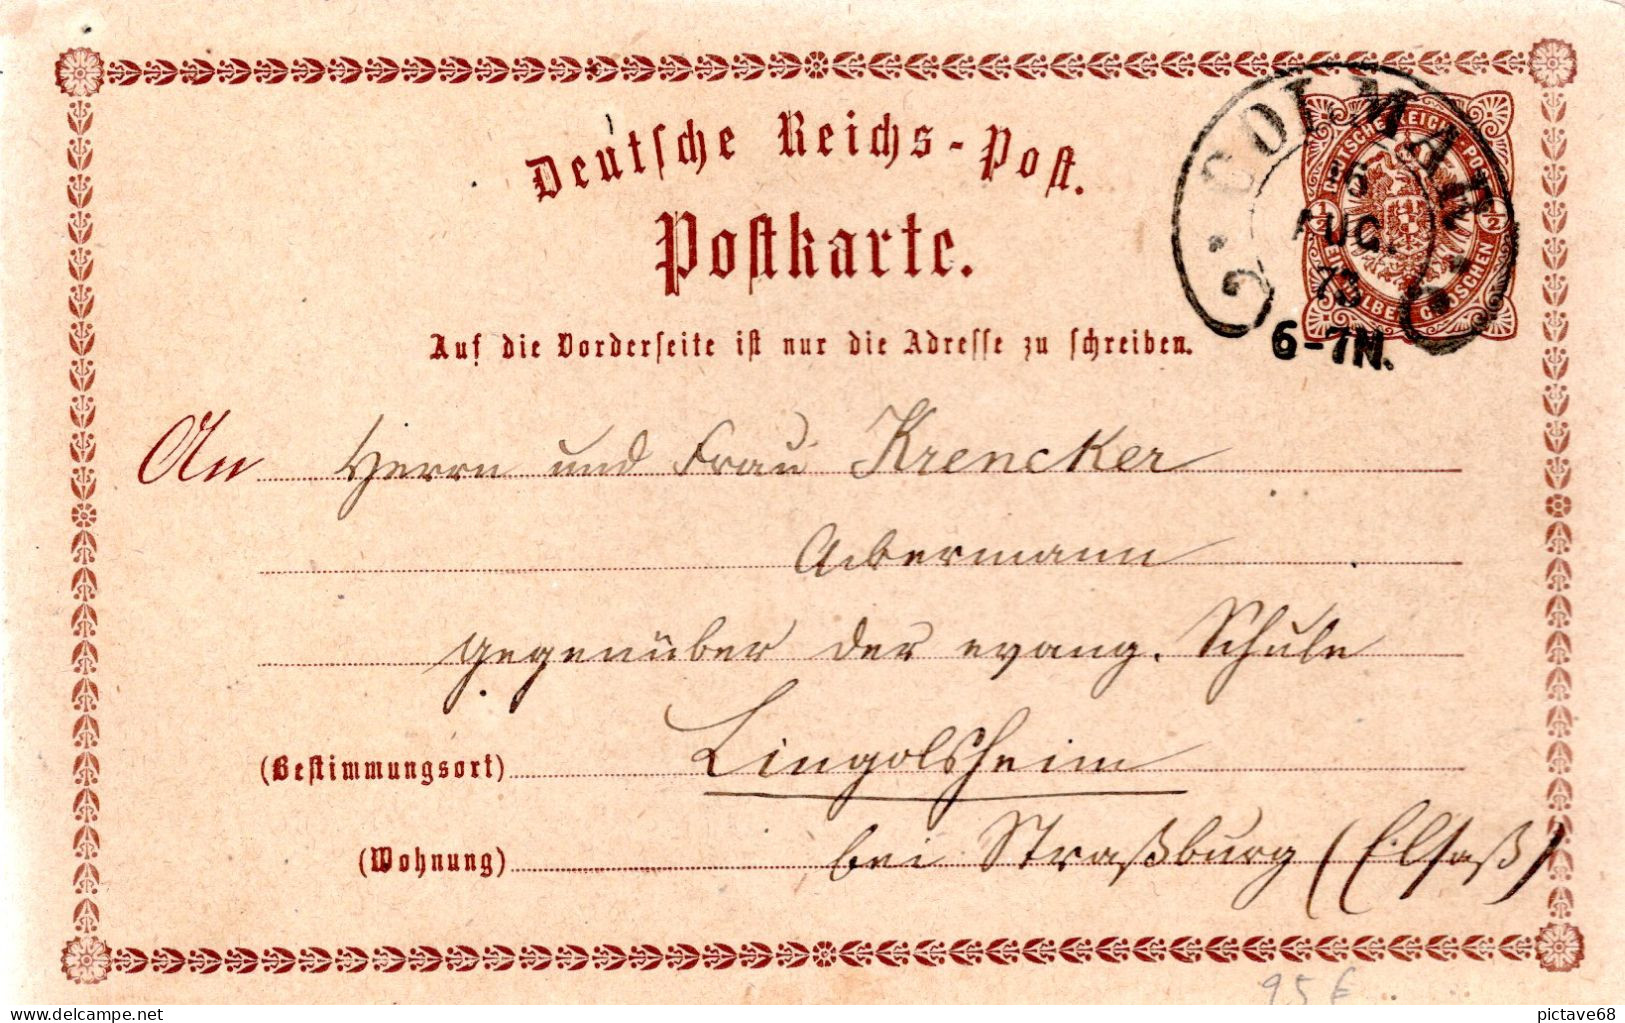 Deutsche Reichs-Post.
Postkarte.
COLMAR
AUG.
73
6-7N.
DEUTSCHE REICHS-POST
1/2 1/2
EIN HALBER GROSCHEN
Auf die Vorderseite ist nur die Adresse zu schreiben.
An Herrn und Frau Krencker
Ackermann
gegenüber der evang. Schule
(Bestimmungsort) Lingolsheim
(Wohnung) bei Straßburg (Elsaß)
95 €
delcampe.net
pictave68